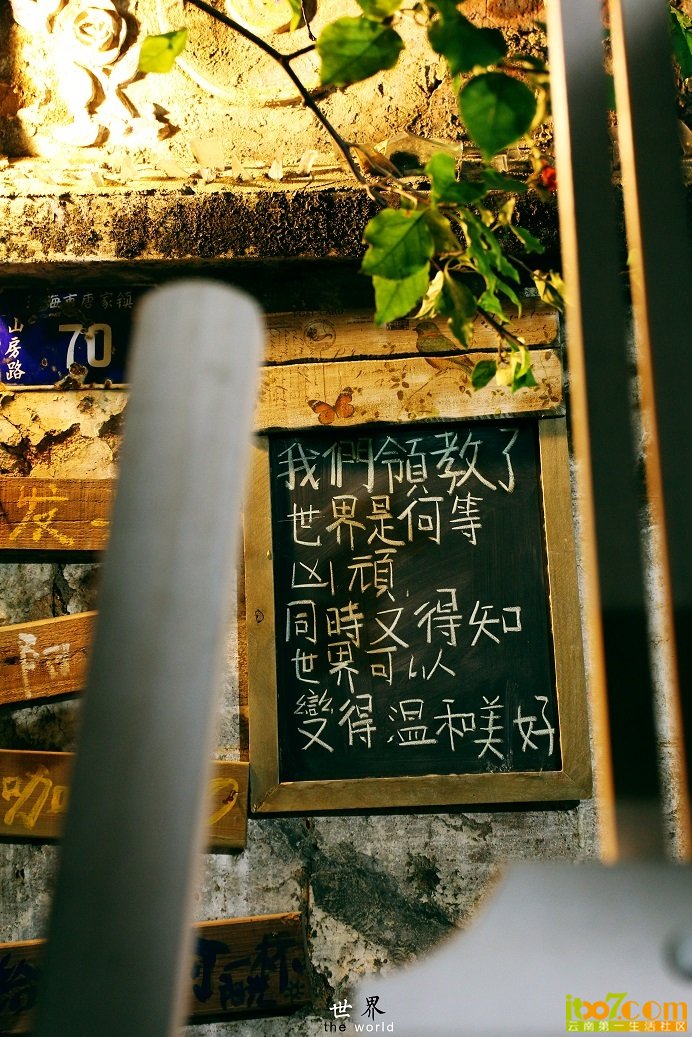 海市唐家镇
山房路
70
我們領教了
世界是何等
凶頑
同時又得知
世界可以
變得温和美好
发一
咖
一杯
世界
the world
itoo7.com
云南第一生活社区